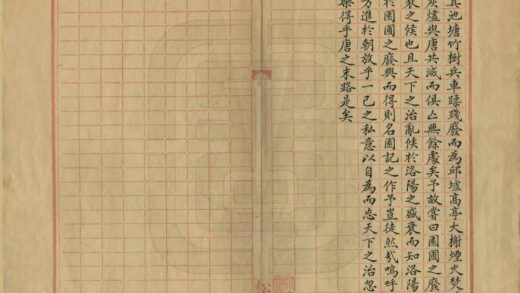 其池塘竹樹兵車蹂踐廢而為邱墟高亭大榭煙火焚
灰燼與唐共滅而俱亡無餘處矣予故嘗曰園囿之廢
衰之候也且天下之治亂候於洛陽之盛衰而知洛陽
於園囿之廢興而得則名園記之作予豈徒然哉嗚呼
方進於朝放乎一己之私意以自為而忘天下之治忽
樂得乎唐之末路是矣
松